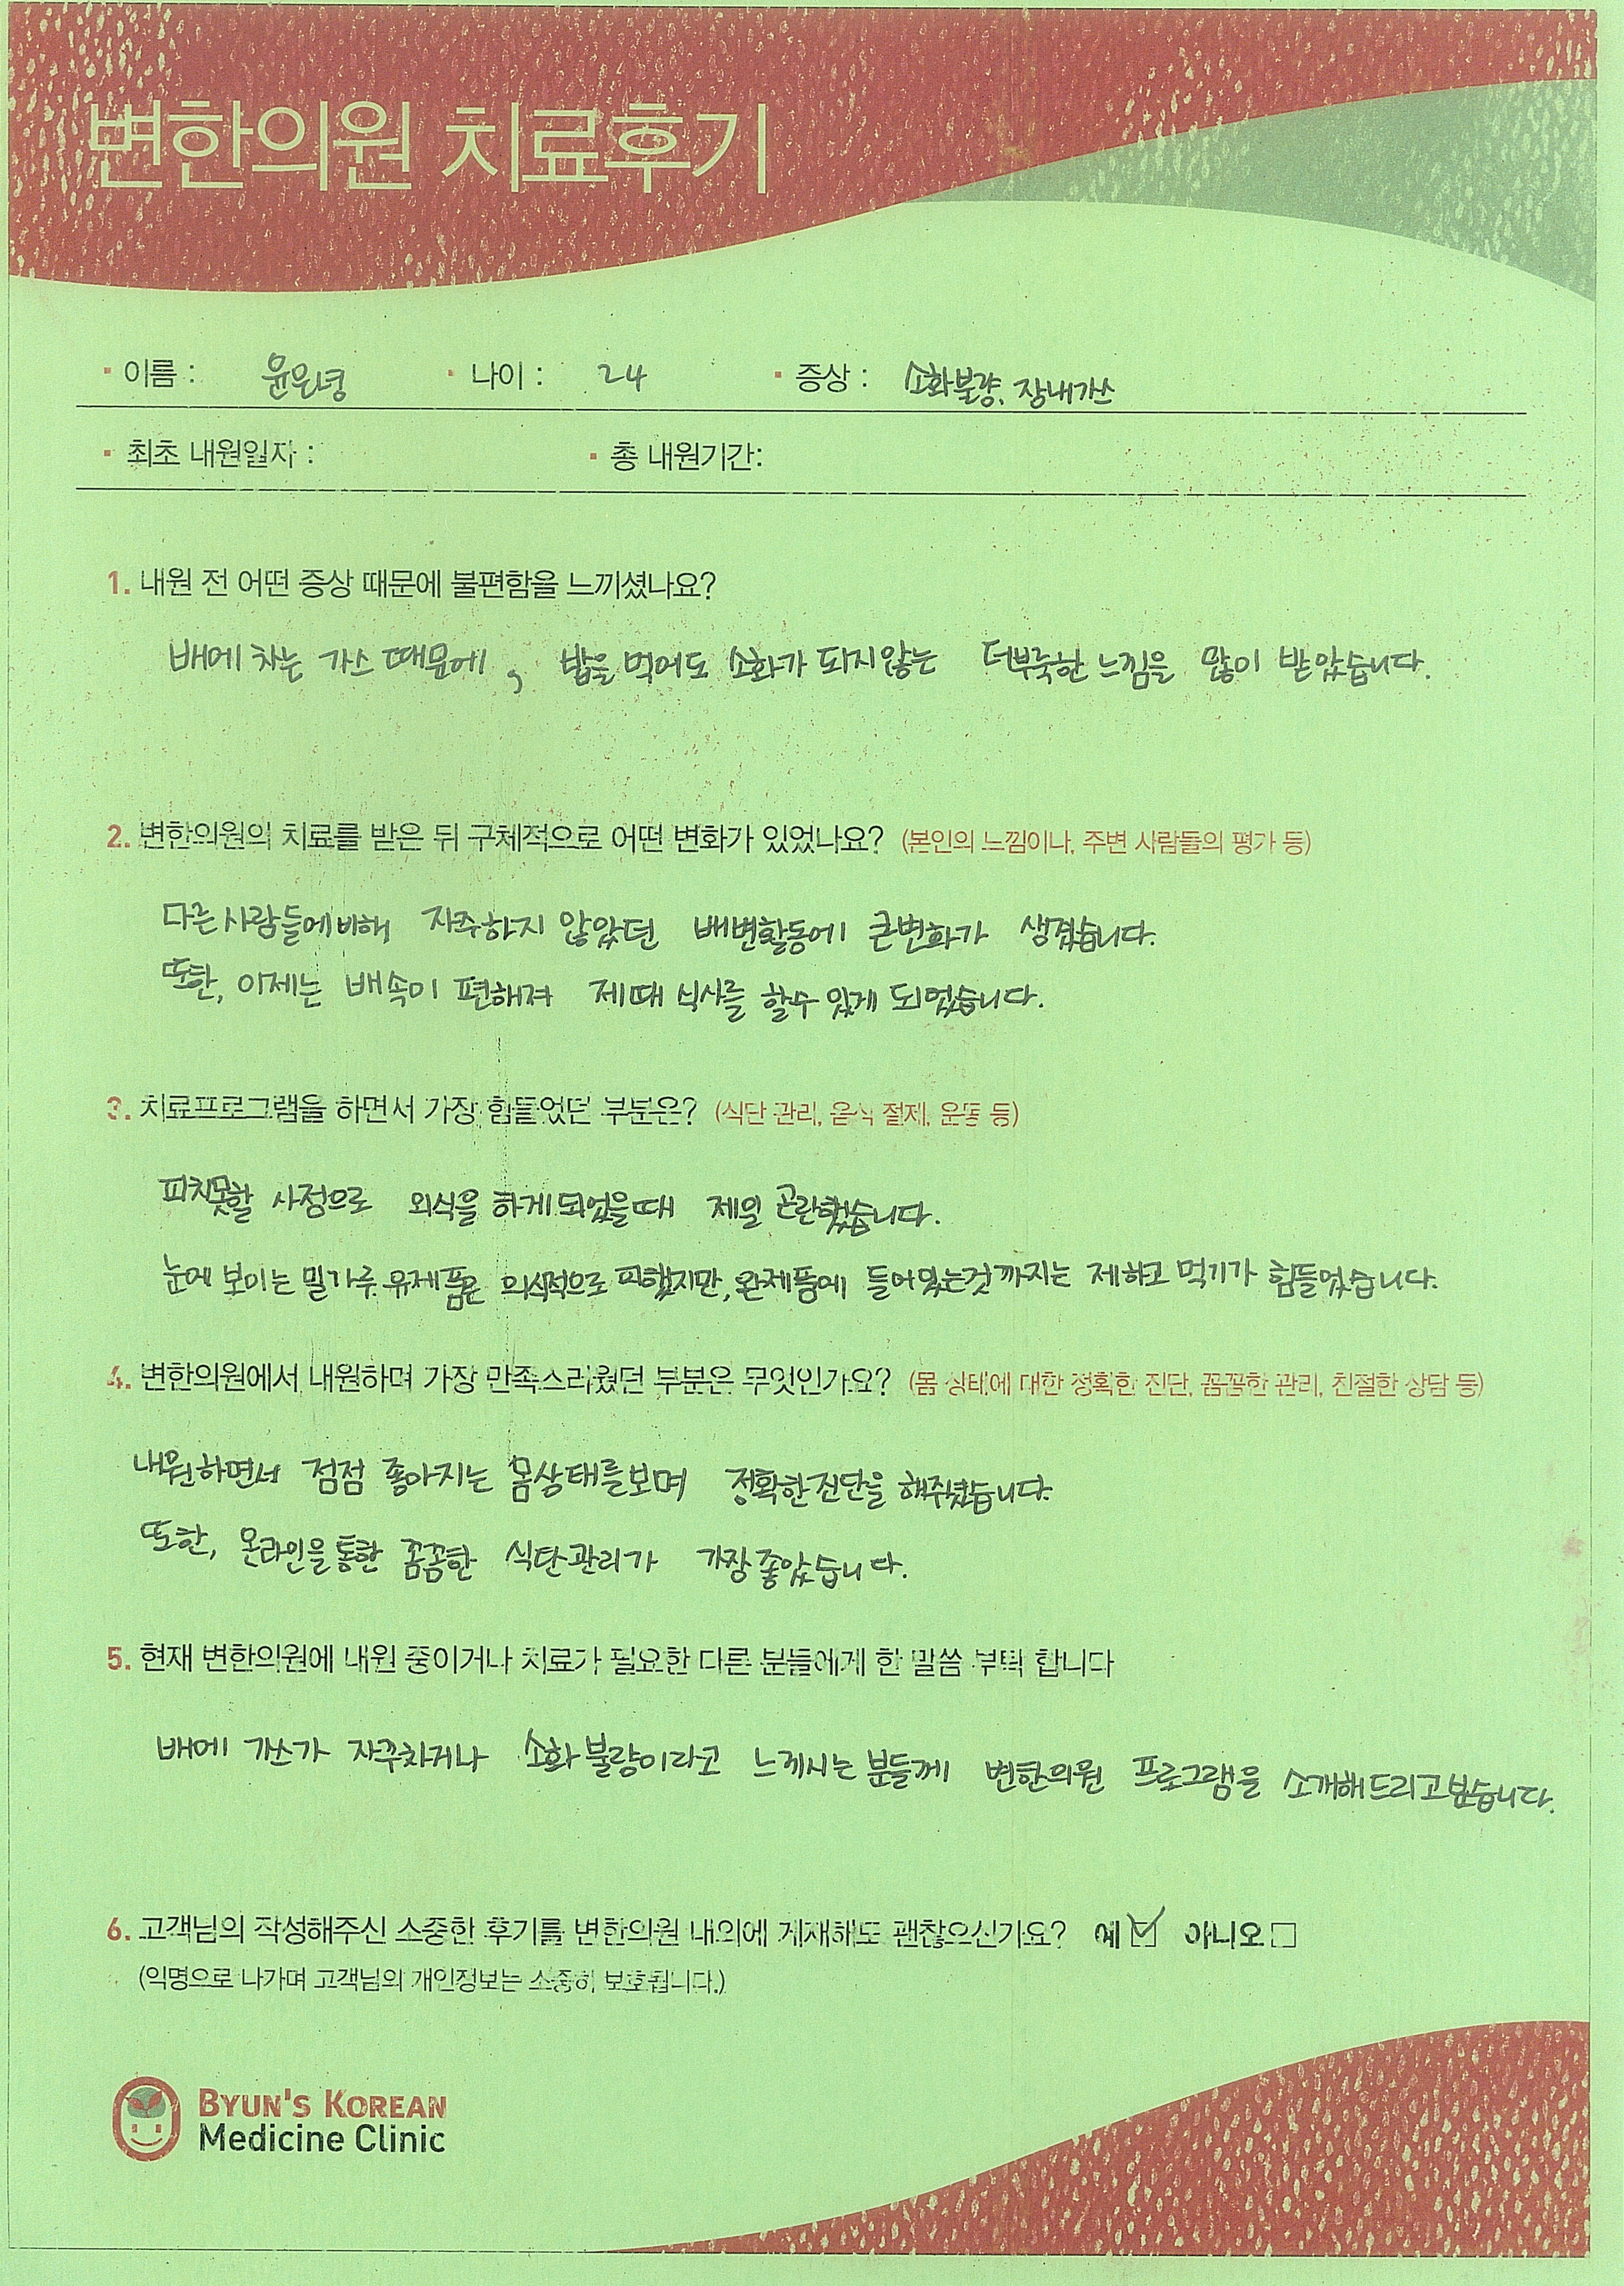 변한의원 치료후기
이름 : 나이 : 24 증상 : 소화불량, 장내가스
최초 내원일자 : 총 내원기간:
1. 내원 전 어떤 증상 때문에 불편함을 느끼셨나요?
배에 차는 가스 때문에, 밥을 먹어도 소화가 되지않는 더부룩한 느낌을 많이 받았습니다.
2. 변한의원의 치료를 받은 뒤 구체적으로 어떤 변화가 있었나요? (본인의 느낌이나, 주변 사람들의 평가 등)
다른 사람들에 비해 자주하지 않았던 배변활동에 큰변화가 생겼습니다.
또한, 이제는 배속이 편해져 제때 식사를 할수 있게 되었습니다.
3. 치료프로그램을 하면서 가장 힘들었던 부분은? (식단 관리, 음식 절제, 운동 등)
피치못할 사정으로 외식을 하게되었을때 제일 곤란했습니다.
눈에 보이는 밀가루, 유제품은 의식적으로 피했지만, 완제품에 들어있는것까지는 제하고 먹기가 힘들었습니다.
4. 변한의원에서 내원하며 가장 만족스러웠던 부분은 무엇인가요? (몸 상태에 대한 정확한 진단, 꼼꼼한 관리, 친절한 상담 등)
내원하면서 점점 좋아지는 몸상태를보며 정확한진단을 해주셨습니다.
또한, 온라인을통한 꼼꼼한 식단관리가 가장좋았습니다.
5. 현재 변한의원에 내원 중이거나 치료가 필요한 다른 분들에게 한 말씀 부탁 합니다
배에 가쓰가 자꾸차거나 소화불량이라고 느끼시는 분들께 변한의원 프로그램을 소개해드리고싶습니다.
6. 고객님의 작성해주신 소중한 후기를 변한의원 내외에 게재해도 괜찮으신가요? 예☑ 아니오☐
(익명으로 나가며 고객님의 개인정보는 소중히 보호됩니다.)
BYUN'S KOREAN
Medicine Clinic